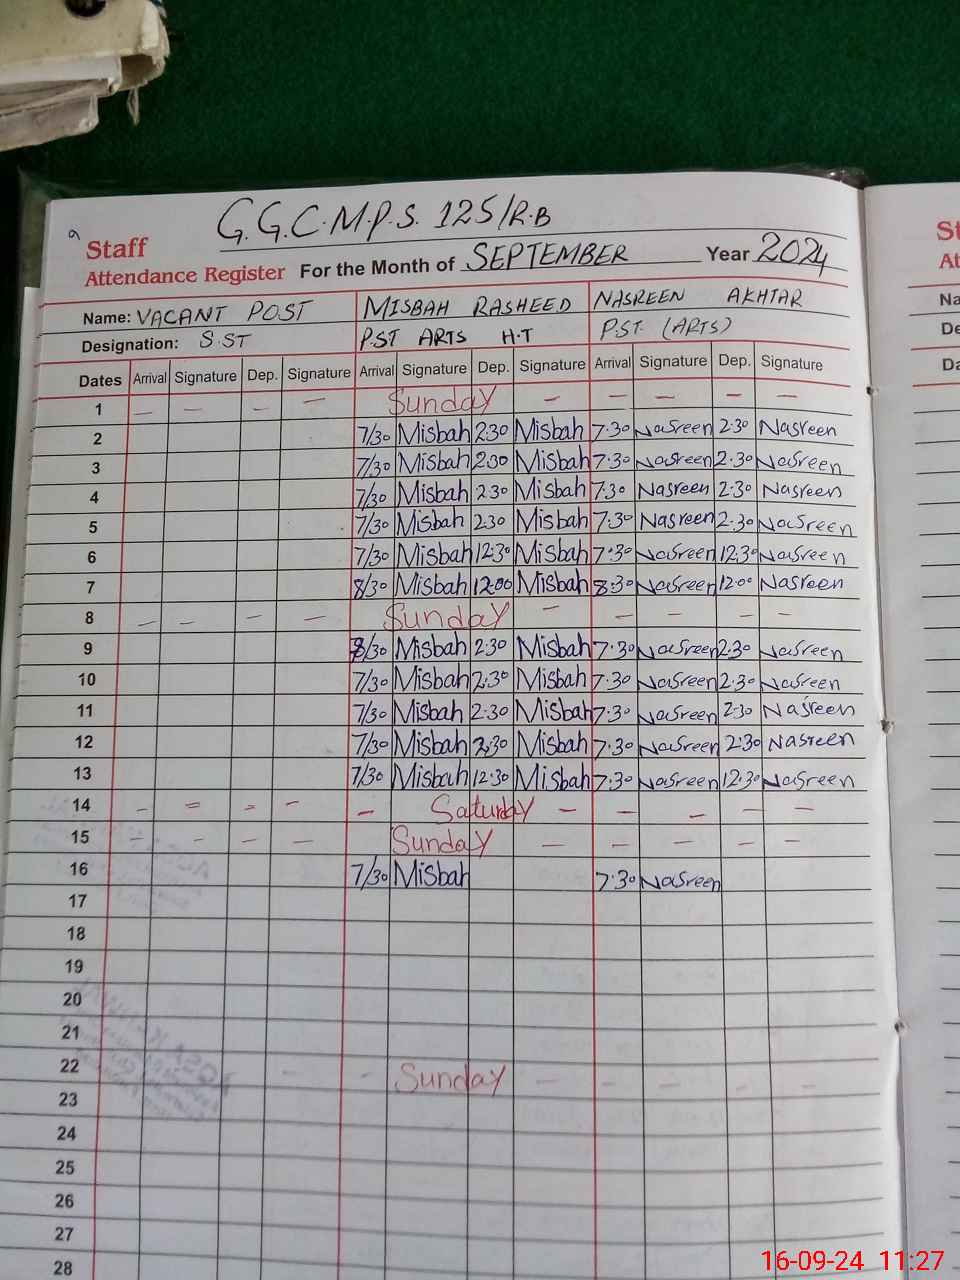 G.G.C.M.P.S. 125/R.B
Staff
Attendance Register For the Month of SEPTEMBER Year 2024
Name: VACANT POST MISBAH RASHEED NASREEN AKHTAR
Designation: S.ST P.ST ARTS H.T P.ST (ARTS)
Dates Arrival Signature Dep. Signature Arrival Signature Dep. Signature Arrival Signature Dep. Signature
1 — — — — Sunday — — — — —
2 7/30 Misbah 2:30 Misbah 7:30 Nasreen 2:30 Nasreen
3 7/30 Misbah 2:30 Misbah 7:30 Nasreen 2:30 Nasreen
4 7/30 Misbah 2:30 Misbah 7:30 Nasreen 2:30 Nasreen
5 7/30 Misbah 2:30 Misbah 7:30 Nasreen 2:30 Nasreen
6 7/30 Misbah 12:30 Misbah 7:30 Nasreen 12:30 Nasreen
7 8/30 Misbah 12:00 Misbah 8:30 Nasreen 12:00 Nasreen
8 — — — — Sunday — — — — —
9 8/30 Misbah 2:30 Misbah 7:30 Nasreen 2:30 Nasreen
10 7/30 Misbah 2:30 Misbah 7:30 Nasreen 2:30 Nasreen
11 7/30 Misbah 2:30 Misbah 7:30 Nasreen 2:30 Nasreen
12 7/30 Misbah 2:30 Misbah 7:30 Nasreen 2:30 Nasreen
13 7/30 Misbah 12:30 Misbah 7:30 Nasreen 12:30 Nasreen
14 - = - - — Saturday — — — — —
15 — — — — Sunday — — — — —
16 7/30 Misbah 7:30 Nasreen
17
18
19
20
21
22 — — Sunday — — — — —
23
24
25
26
27
28
16-09-24 11:27